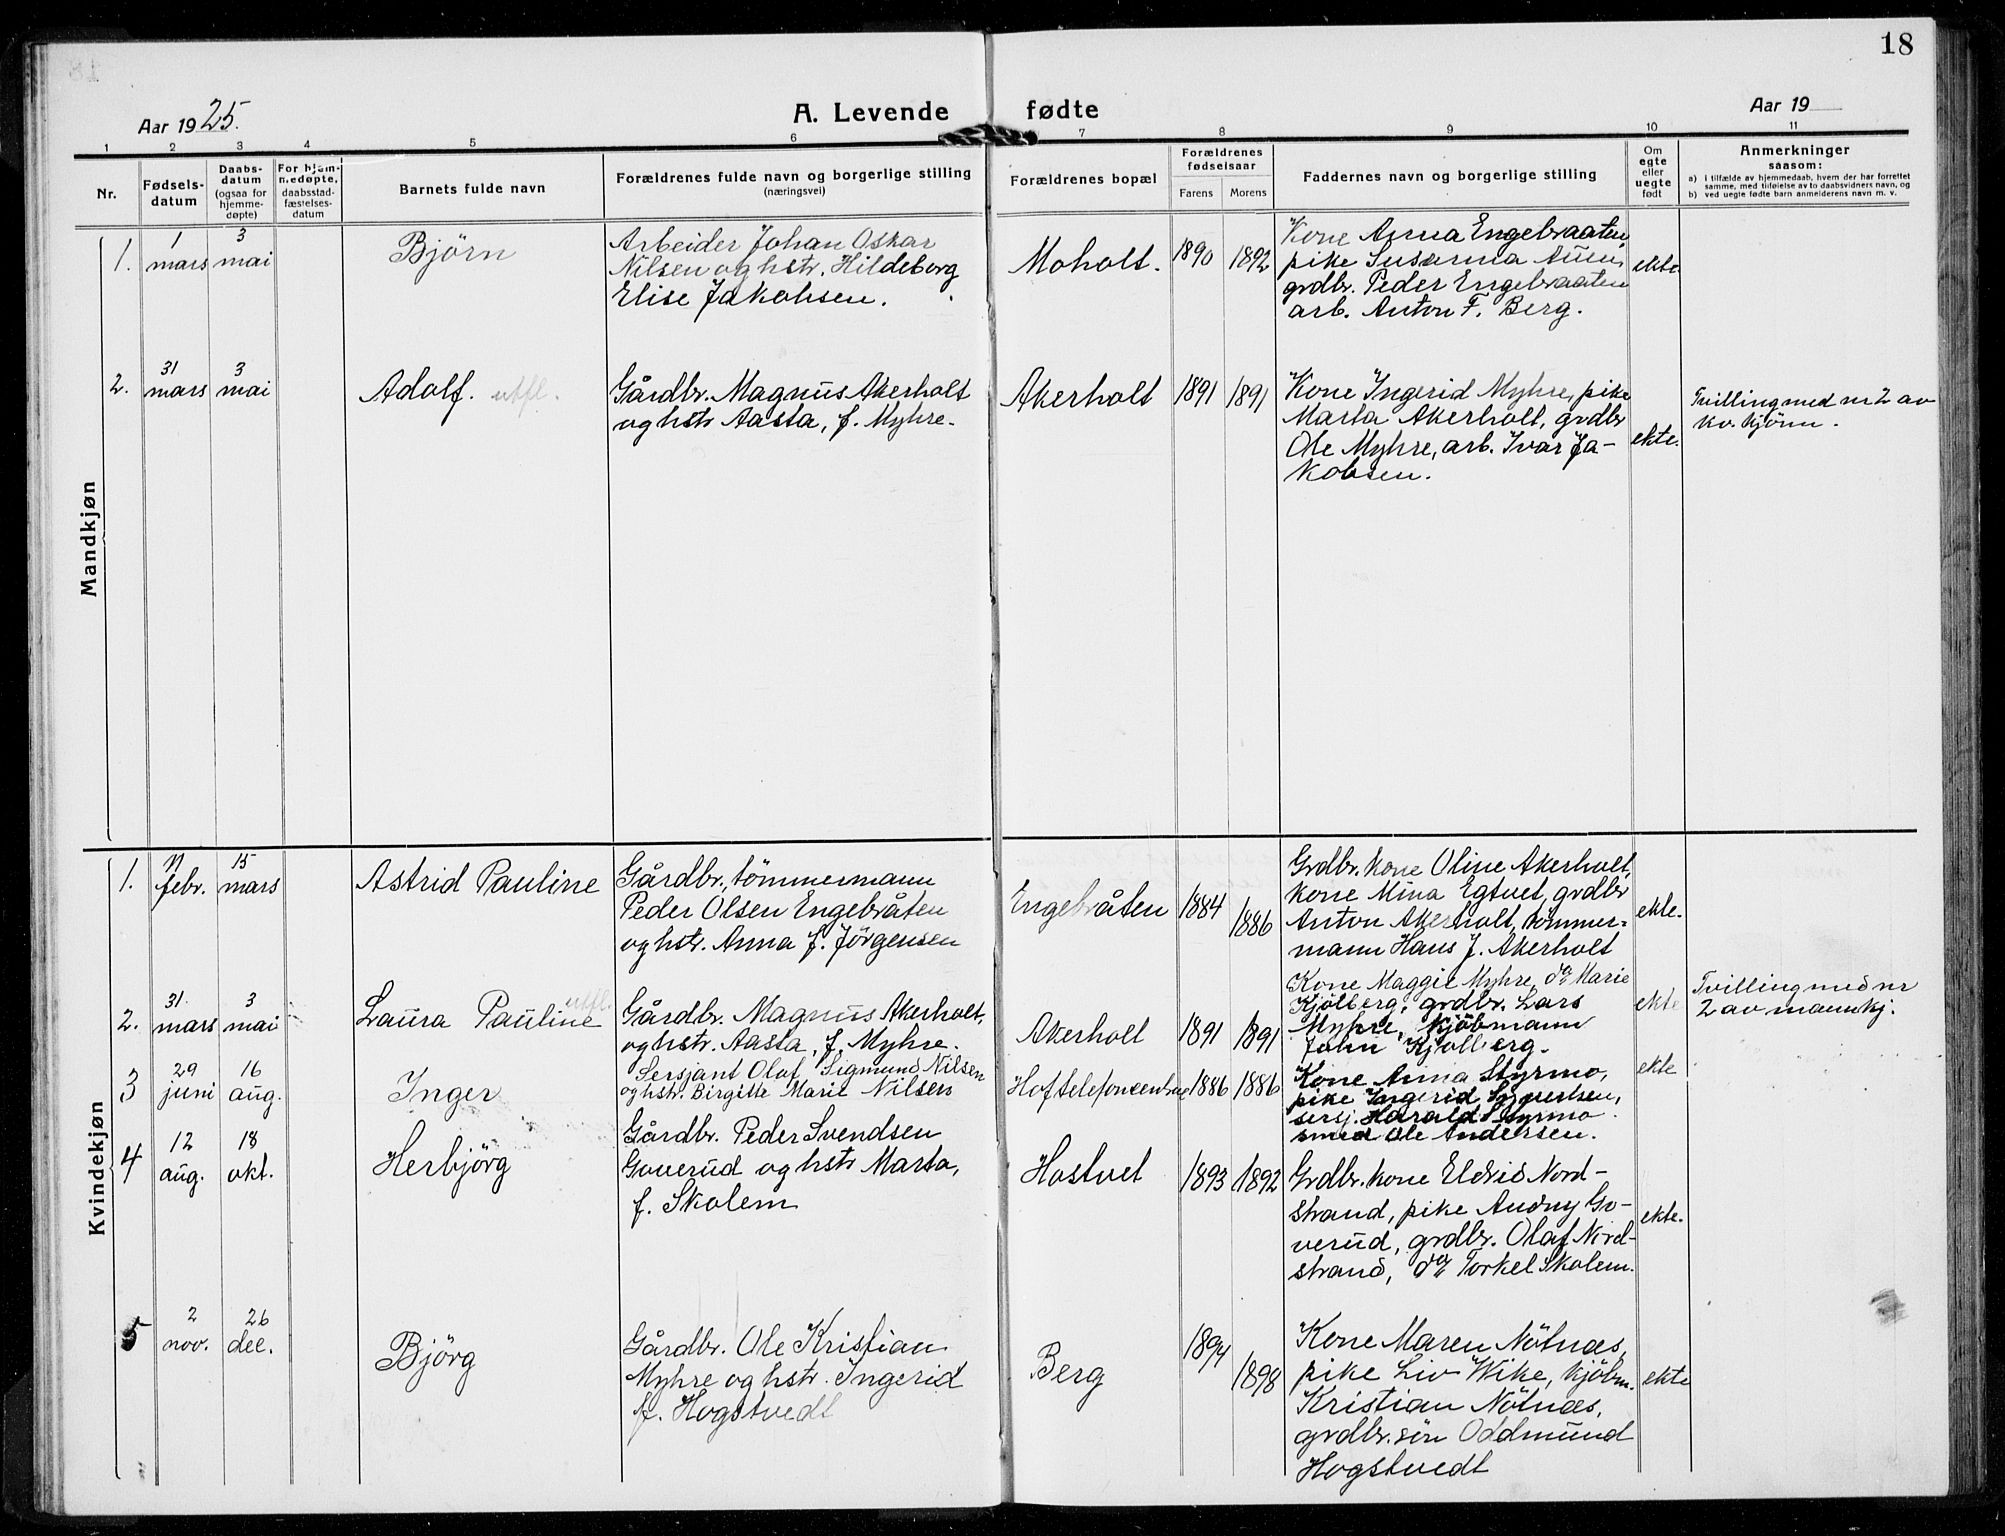 18
Aar 1925.
A. Levende fødte
Aar 19
1 2 3 4 5 6 7 8 9 10 11
Nr.
Fødsels-
datum
Daabs-
datum
(ogsaa for
hjemme-
døpte)
For hjem-
medøpte,
daabsstad-
fæstelses-
datum
Barnets fulde navn
Forældrenes fulde navn og borgerlige stilling
(næringsvei)
Forældrenes bopæl
Forældrenes
fødselsaar
Farens Morens
Faddernes navn og borgerlige stilling
Om
egte
eller
uegte
født
Anmerkninger
saasom:
a) I tilfælde av hjemmedaab, hvem der har forrettet
samme, med tilføielse av to daabsvidners navn, og
b) ved uegte fødte barn anmelderens navn m. v.
Mandkjøn
1.
1
mars
3
mai
Bjørn
Arbeider Johan Oskar
Nilsen og hstr. Hildeborg
Elise Jakobsen.
Moholt.
1890 1892
Kone Anna Engebraaten,
pike Susanna
grdbr. Peder Engebraaten
arb. Anton F. Berg.
ekte
2.
31
mars
3
mai
Adolf. utfl.
Gårdbr. Magnus Akerholt
og hstr Aasta, f. Myhre.
Akerholt
1891 1891
Kone Ingerid Myhre, pike
Marta Akerholt, grdbr
Ole Myhre, arb. Ivar Ja-
kobsen.
ekte.
Tvilling med nr 2 av
kv. kjønn.
Kvindekjøn
1.
11
febr.
15
mars
Astrid Pauline
Gårdbr., tømmermann
Peder Olsen Engebråten
og hstr. Anna f. Jörgensen
Engebråten
1884 1886
Grdbr. kone Oline Akerholt,
kone Mina Egtvet, grdbr
Anton Akerholt, tömmer-
mann Hans J. Akerholt
ekte.
2.
31
mars
3
mai
Laura Pauline utfl.
Gårdbr. Magnus Akerholt,
og hstr. Aasta, f. Myhre.
Akerholt
1891 1891
Kone Maggie Myhre, do Marie
Kjölberg, grdbr. Lars
Myhre, kjöbmann
John Kjölberg.
ekte
Tvilling med nr
2 av mannkj.
3
29
juni
16
aug.
Inger
Sersjant Olaf Sigmund Nilsen
og hstr. Birgitte Marie Nilsen
Hof telefoncentral
1886 1886
Kone Anna Styrmo,
pike Ingerid Syvertsen,
sersj. Harald Styrmo
smed Ole Andersen.
ekte
4
12
aug.
18
okt.
Herbjörg
Gårdbr. Peder Svendsen
Goverud og hstr Marta,
f. Skolem
Hostvet
1893 1892
Grdbr. kone Eldrid Nord-
strand, pike Audny Go-
verud, grdbr. Olaf Nord-
strand, do Torkel Skolem.
ekte.
5
2
nov.
26
dec.
Björg
Gårdbr. Ole Kristian
Myhre og hstr. Ingerid
f. Hogstvedt
Berg
1894 1898
Kone Maren Nötnæs,
pike Liv Wike, kjöbm.
Kristian Nötnæs,
grdbr. sön Oddmund
Hogstvedt
ekte